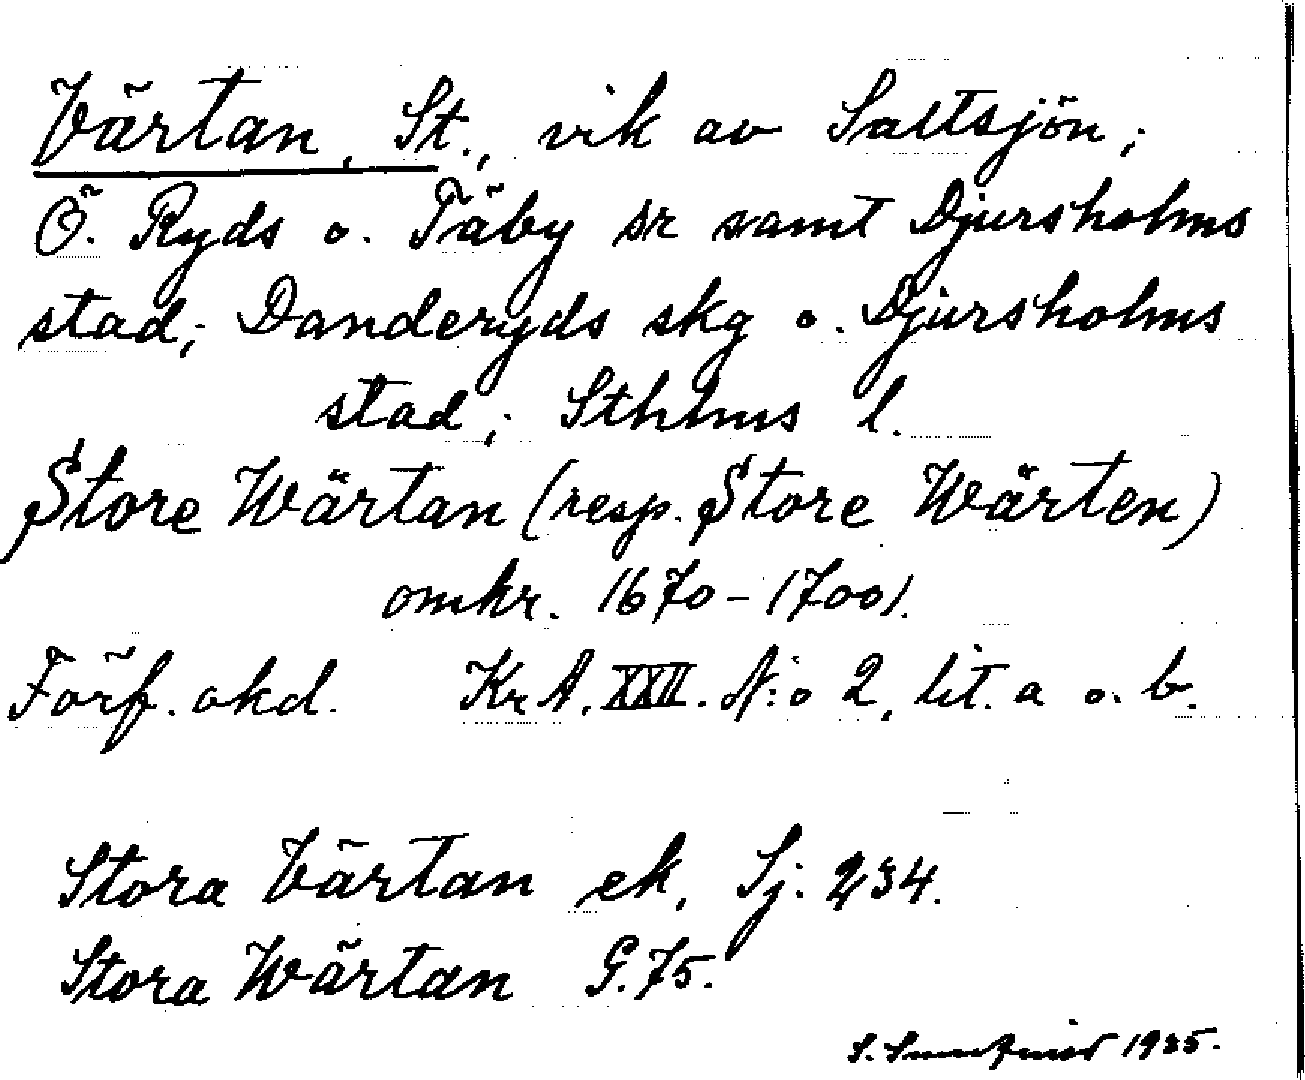 Värtan, St., vik av Saltsjön;
Ö. Ryds o. Täby sr samt Djursholms
stad; Danderyds skg o. Djursholms
stad; Sthlms l.
Store Wärtan (resp. Store Wärten)
omkr. 1670-1700).
Förf. okd. KrA. XXII. N:o 2, lit. a o. b.
Stora Värtan ek, Sj: 234.
Stora Wärtan G. 75.
S. 1935.